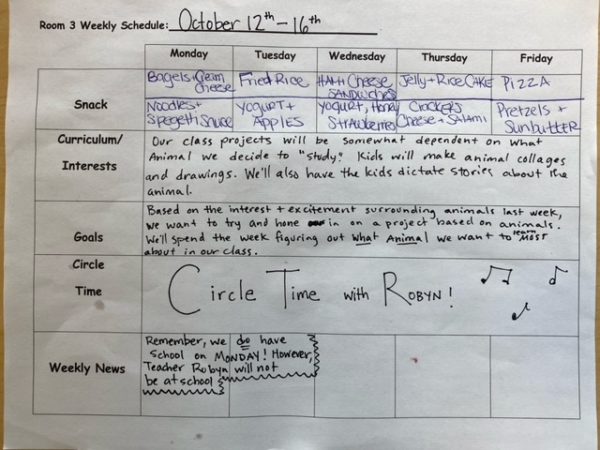 Room 3 Weekly Schedule: October 12th - 16th
Monday Tuesday Wednesday Thursday Friday
Snack
Bagels + Cream Cheese
Fried Rice
HAM + Cheese SANDWICHES
Jelly + Rice CAKE
PIZZA
Noodles + Spegetti Sauce
YOGURT + APPLES
YOGURT, Honey Strawberries
Crackers Cheese + Salami
Pretzels + Sunbutter
Curriculum/
Interests
Our class projects will be somewhat dependent on what
Animal we decide to "study". Kids will make animal collages
and drawings. We'll also have the kids dictate stories about the
animal.
Goals
Based on the interest + excitement surrounding animals last week,
we want to try and hone in on a project based on animals.
We'll spend the week figuring out what Animal we want to learn MOST
about in our class.
Circle
Time
Circle Time with Robyn!
Weekly News
Remember, we do have
School on MONDAY! However,
Teacher Robyn will not
be at school